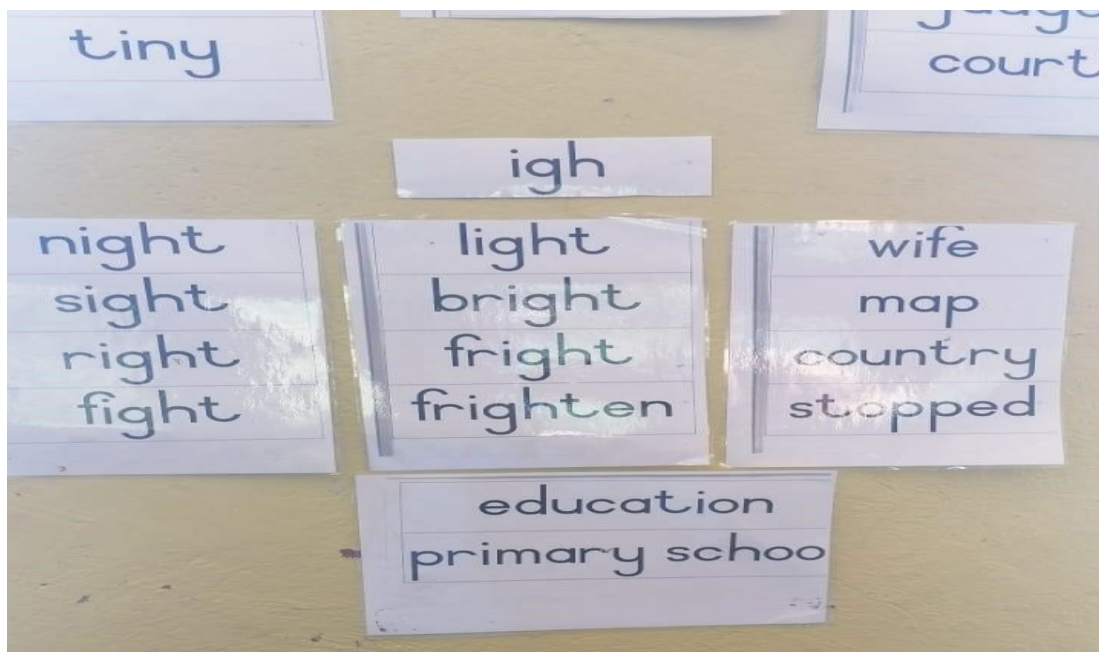 tiny
court
igh
night
sight
right
fight
light
bright
fright
frighten
wife
map
country
stopped
education
primary schoo